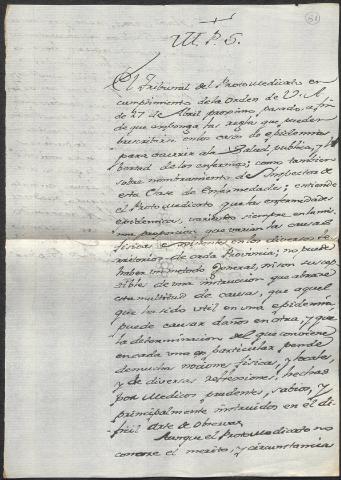 61
M. P. S.
El Tribunal del Protomedicato en
cumplimiento de la Orden de V. A.
de 27 de Abril proximo pasado, a fin
de que exponga las reglas que pueden
prescribirse en los casos de epidemia
para ocurrir a la Salud publica, y li
bertad de los enfermos; como tambien
sobre nombramiento de Inspector de
esta Clase de Enfermedades; entiende
el Protomedicato que las enfermedades
epidemicas, varían siempre en la mis
ma proporcion que varían las causas
fisicas existentes en los diversos te
rritorios de cada Provincia; no puede
haber un metodo general, ni son suscep
tibles de una instruccion que abraze
esta multitud de causas, que aquel
que ha sido util en una epidemia
puede causar daños en otra, y que
la determinacion del que conviene
en cada una en particular pende
de muchas nociones fisicas, y locales,
y de diversas reflexiones, hechas
por Medicos prudentes, sabios, y
principalmente instruidos en el di
ficil Arte de observar.
Aunque el Protomedicato no
conoce el merito, y circunstancias